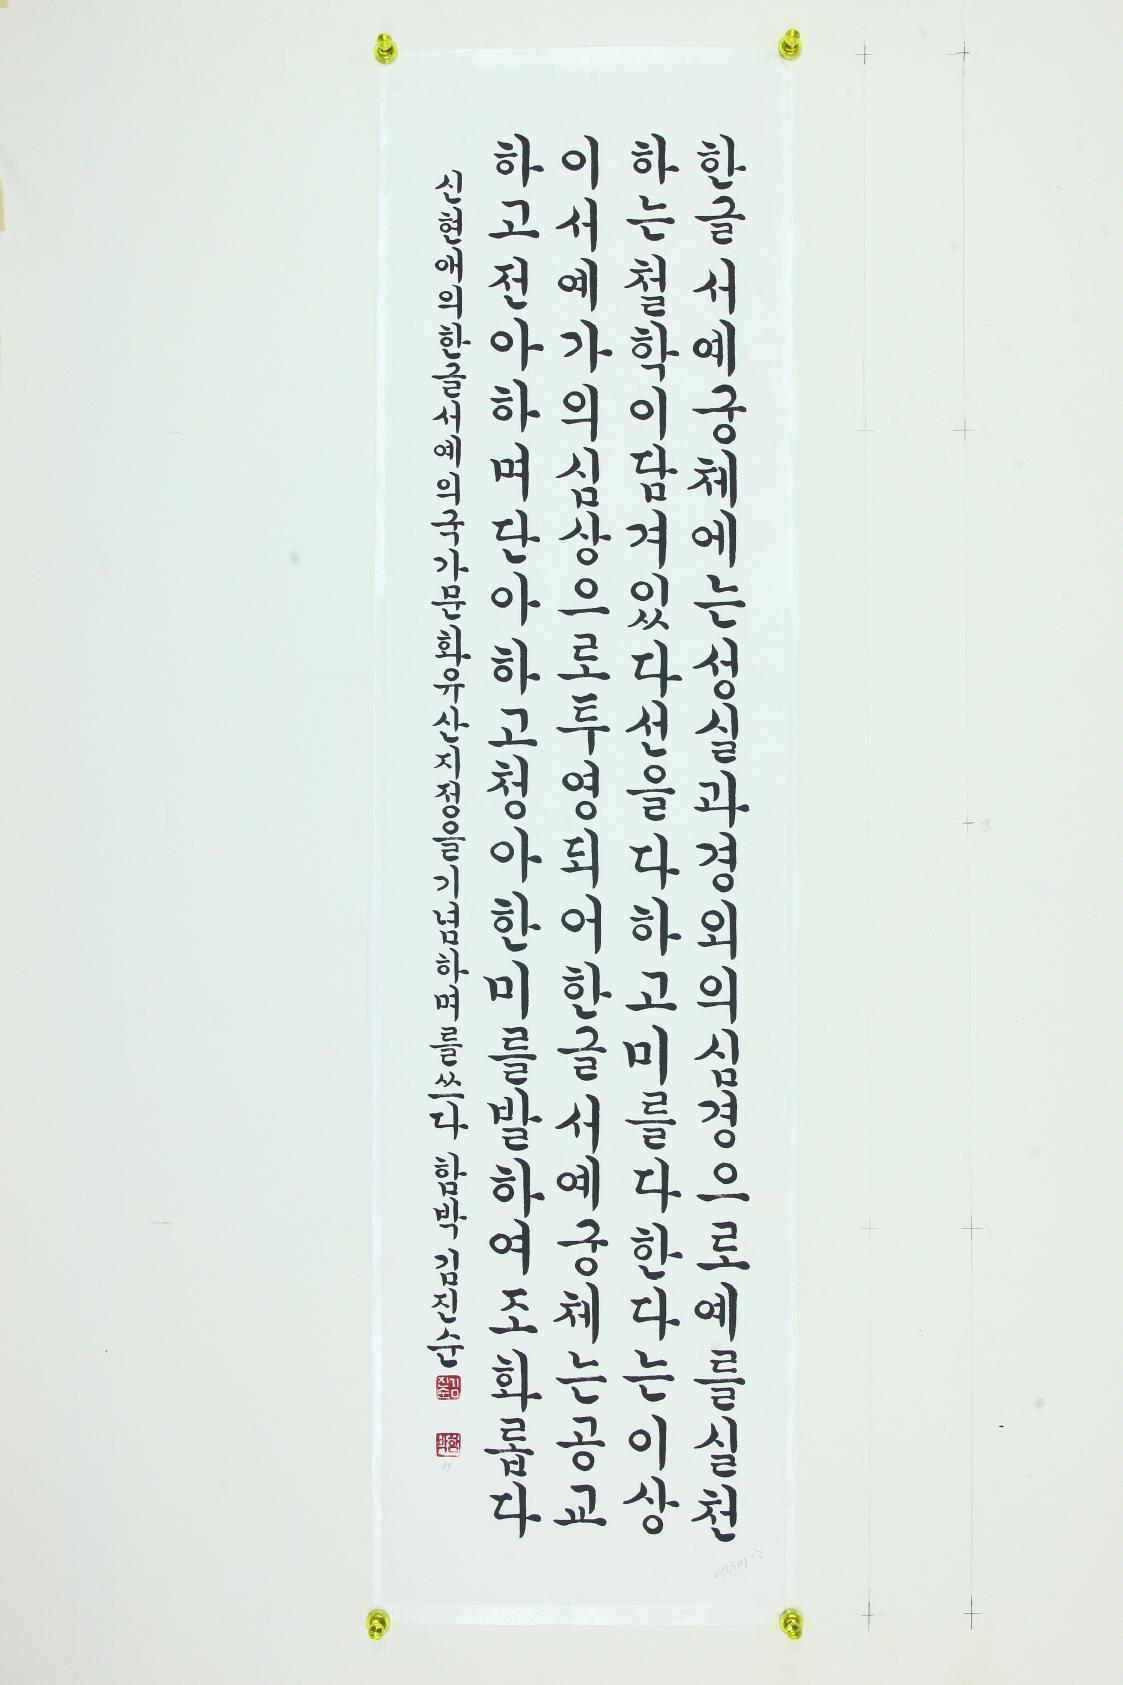 한글서예궁체에는성실과경외의심경으로예를실천
하는철학이담겨있다선을다하고미를다한다는이상
이서예가의심상으로투영되어한글서예궁체는공교
하고전아하며단아하고청아한미를발하여조화롭다
신현애의한글서예의국가문화유산지정을기념하며를쓰다 함박 김진순